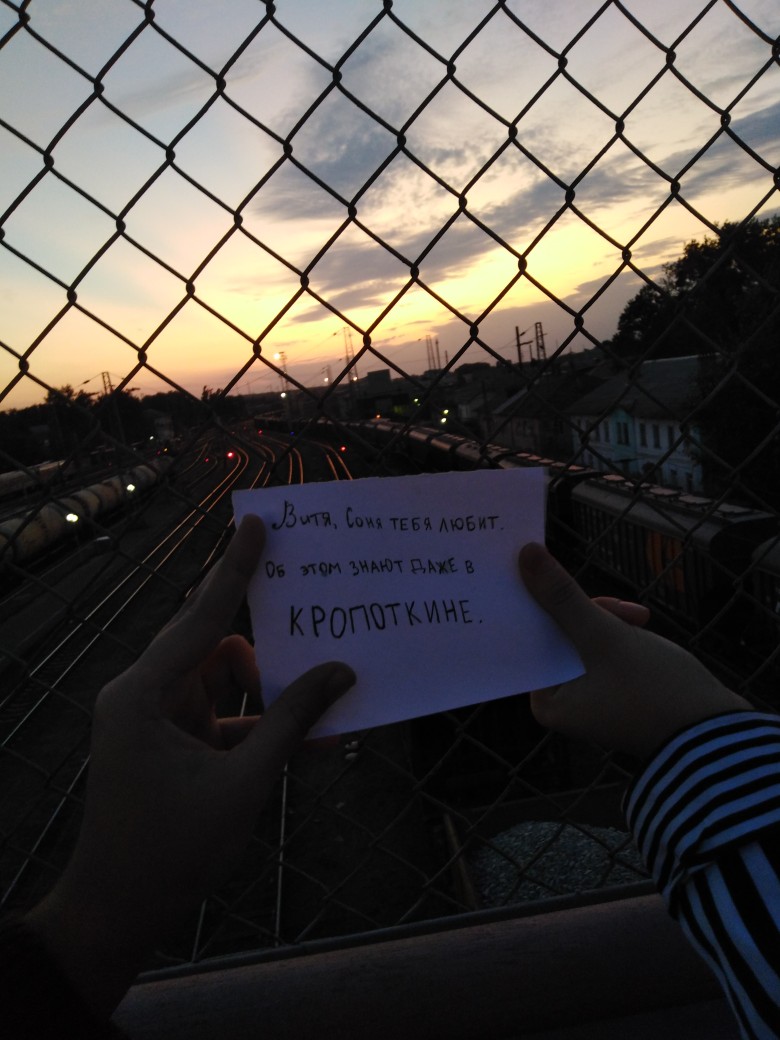 Витя, Соня тебя любит.
Об этом знают даже в
Кропоткине.